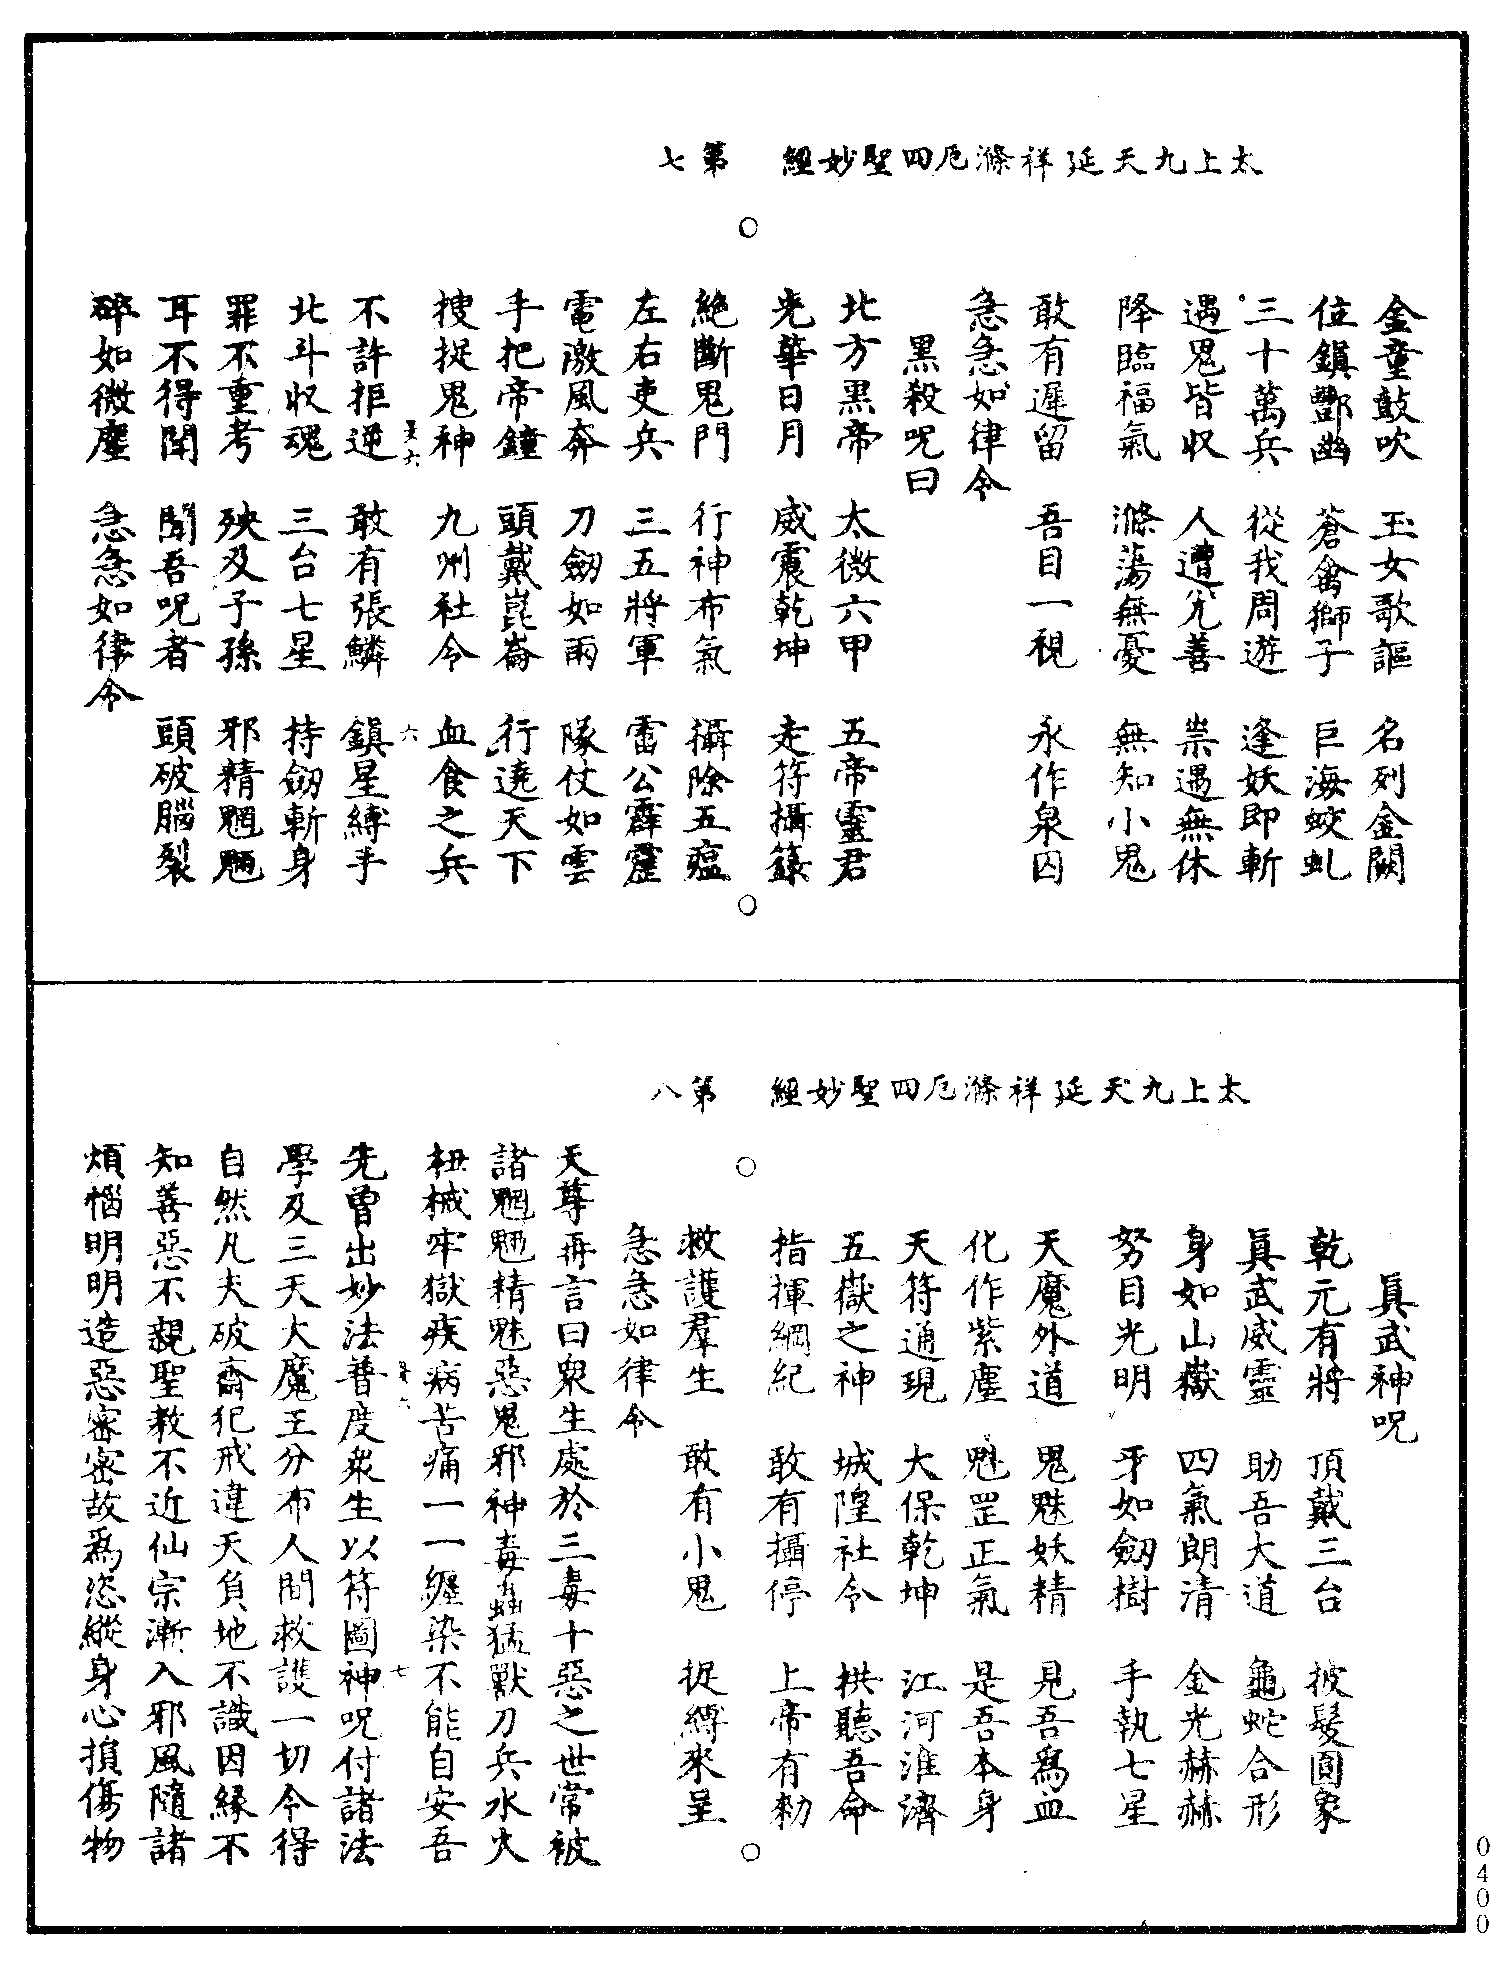 太上九天延祥滌厄四聖妙經　第七
金童鼓吹　玉女歌謳　名列金闕
位鎮酆幽　蒼禽獅子　巨海蛟虬
三十萬兵　從我周遊　逢妖即斬
遇鬼皆収　人遭兇善　祟遇無休
降臨福氣　滌蕩無憂　無知小鬼
敢有遲留　吾目一視　永作泉囚
急急如律令
黑殺呪曰
北方黑帝　太微六甲　五帝靈君
光華日月　威震乾坤　走符攝籙
絕斷鬼門　行神布氣　攝除五瘟
左右吏兵　三五將軍　雷公霹靂
電激風奔　刀劒如雨　隊仗如雲
手把帝鐘　頭戴崑崙　行遶天下
搜捉鬼神　九州社令　血食之兵
不許拒逆　敢有張鱗　鎮星縛手
北斗収魂　三台七星　持劒斬身
罪不重考　殃及子孫　邪精魍魎
耳不得聞　聞吾呪者　頭破腦裂
碎如微塵　急急如律令
六
太上九天延祥滌厄四聖妙經　第八
真武神呪
乾元有將　頂戴三台　披髮圓象
真武威靈　助吾大道　龜蛇合形
身如山嶽　四氣朗清　金光赫赫
努目光明　牙如劒樹　手執七星
天魔外道　鬼魅妖精　見吾為血
化作紫塵　魁罡正氣　是吾本身
天符通現　大保乾坤　江河淮濟
五嶽之神　城隍社令　拱聽吾命
指揮綱紀　敢有攝停　上帝有勑
救護羣生　敢有小鬼　捉縛來呈
急急如律令
天尊再言曰衆生處於三毒十惡之世常被
諸魍魎精魅惡鬼邪神毒蟲猛獸刀兵水火
杻械牢獄疾病苦痛一一纏染不能自安吾
先曾出妙法普度衆生以符圖神呪付諸法
學及三天大魔王分布人間救護一切令得
自然凡夫破齋犯戒違天負地不識因緣不
知善惡不親聖教不近仙宗漸入邪風隨諸
煩惱明明造惡密密故為恣縱身心損傷物
七
0400